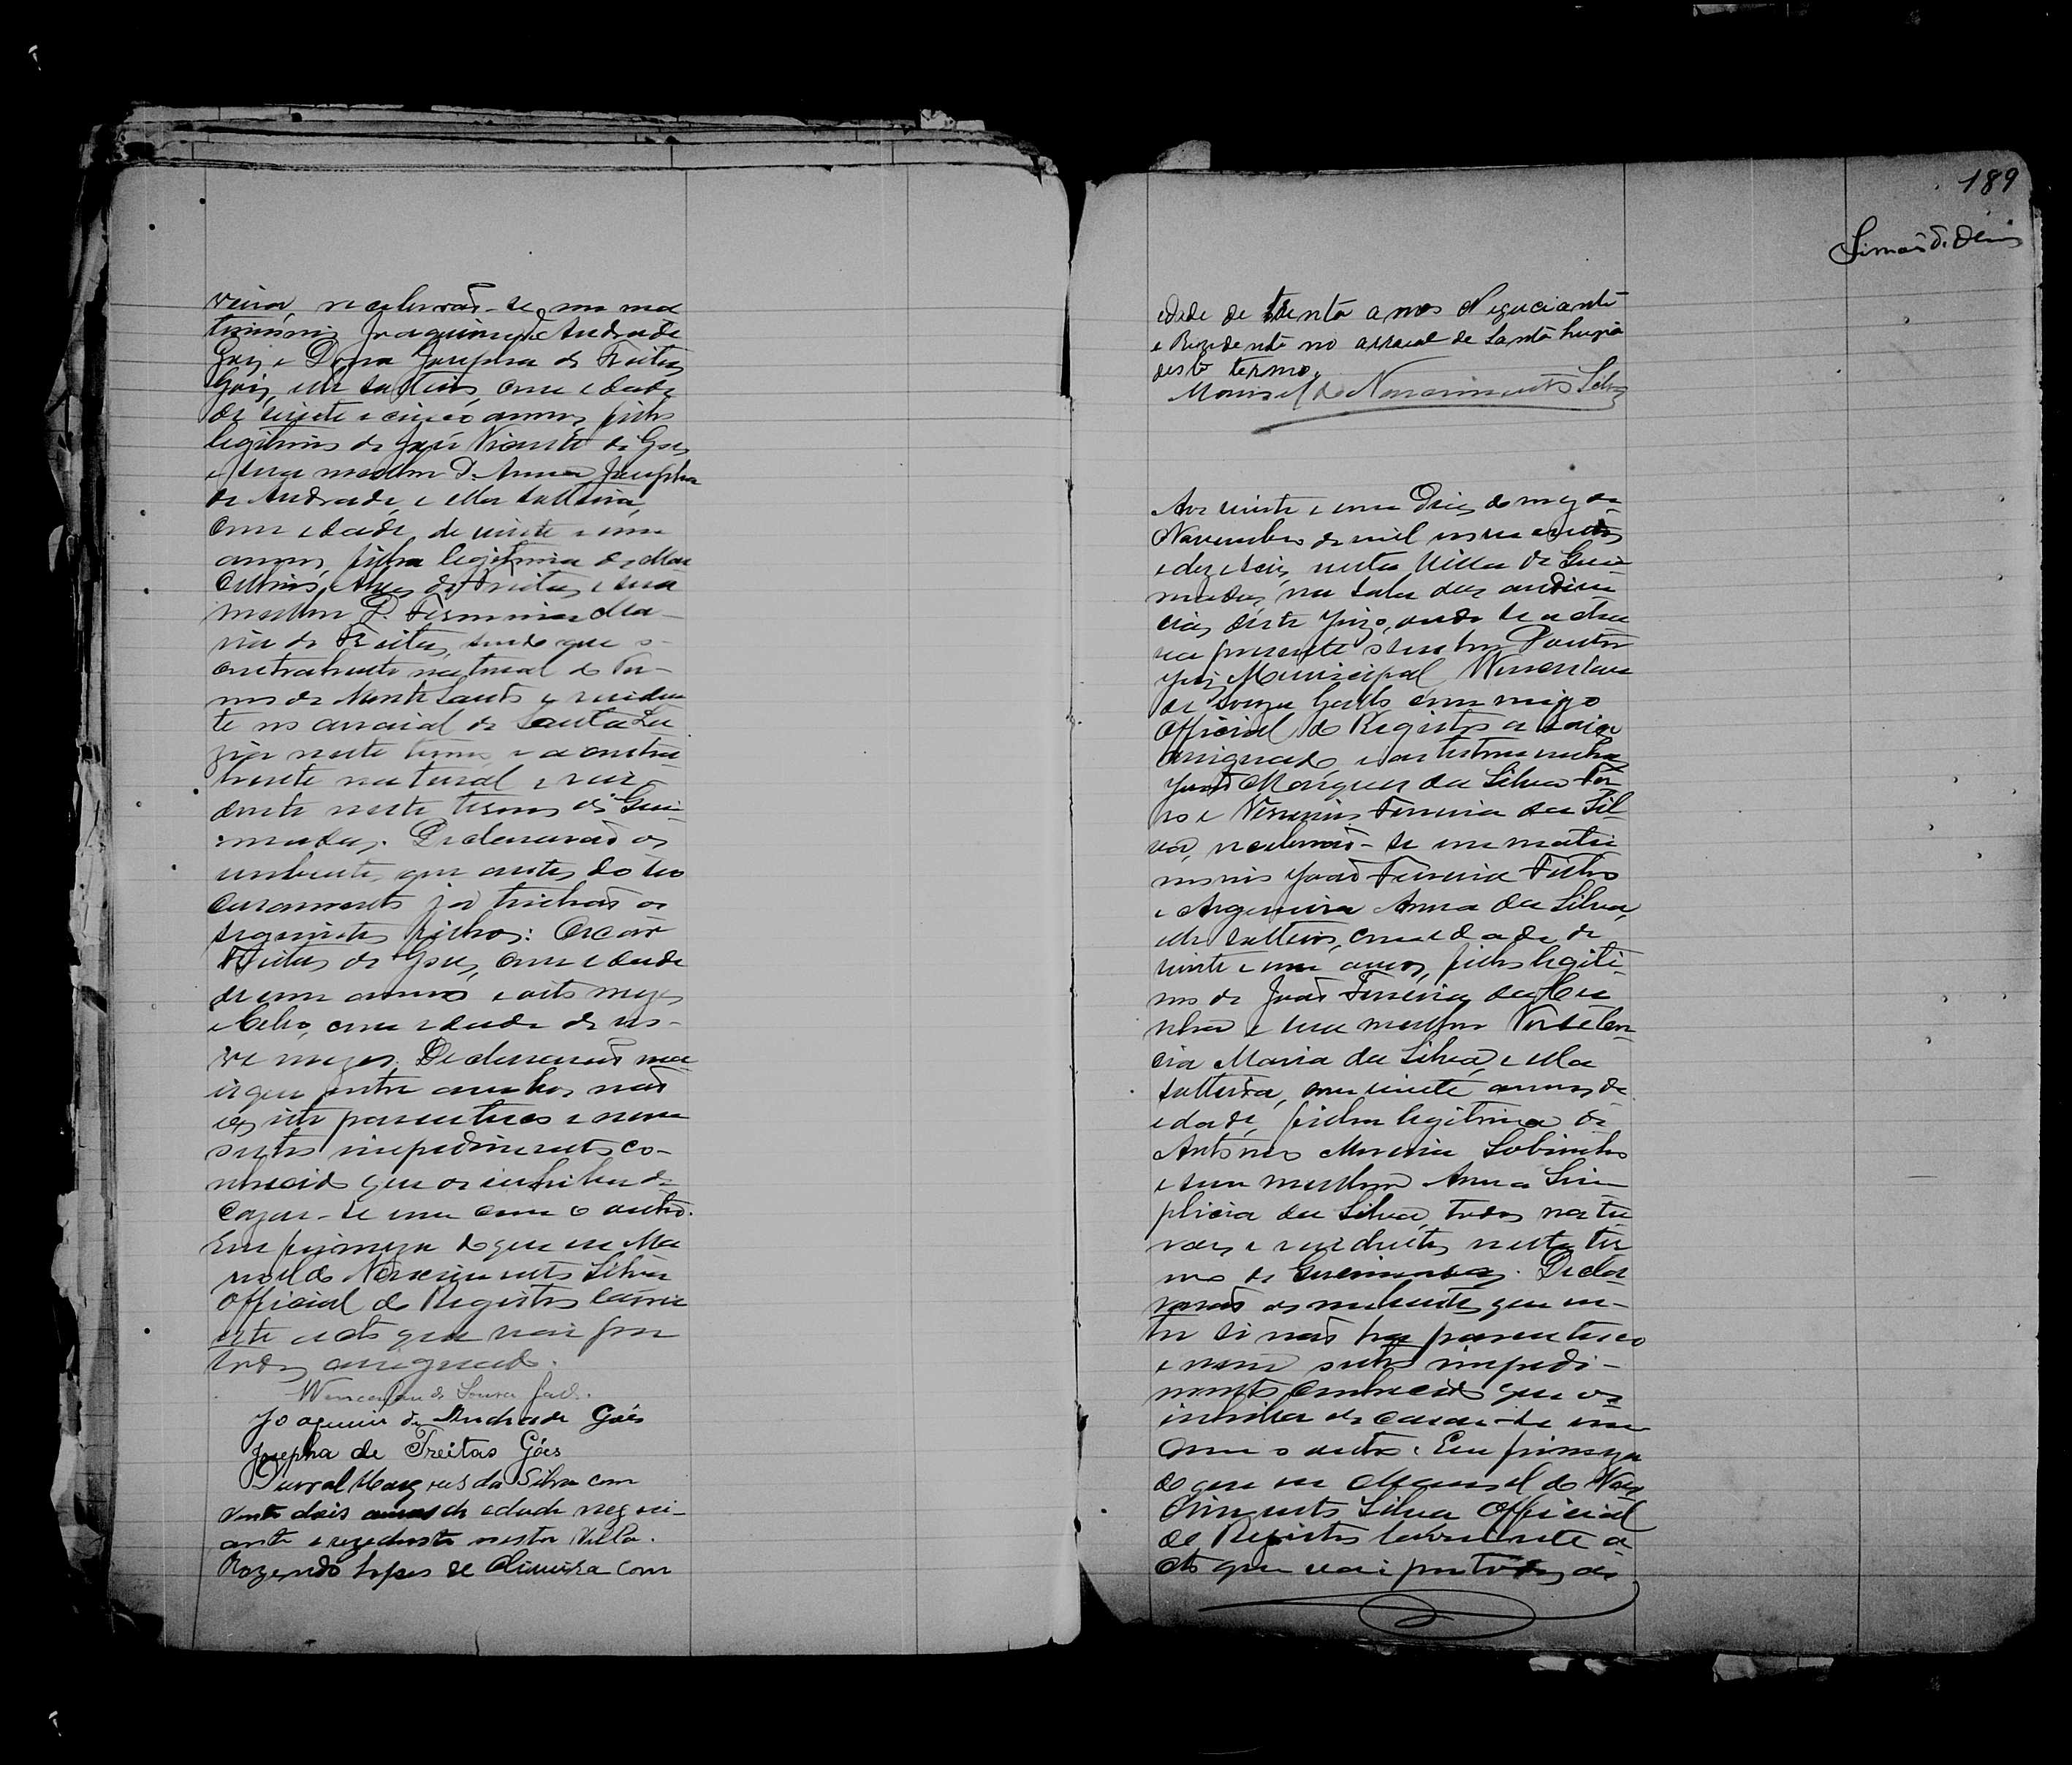 receberaõ-se em ma
trimonio Joaquim de Andrade
Goes e Dona Josepha de Freitas
Goes, elle solteiro, com edade
de vinte e cinco annos, filho
legitimo de José Vicente de Goes
e sua mulher D. Anna Josepha
de Andrade, e ella solteira,
com edade de vinte e um
annos, filha legitima de
Alves de Freitas e sua
mulher D. Firmina Ma-
ria de Freitas, sendo que o
contrahente natural do Ter-
mo de Monte Santo e residen
te no arraial de Santa Lu
zia neste termo e a contra
hente natural e resi
dente neste termo de Quei
madas. Declararaõ os
nubentes que antes do seu
casamento já tinhaõ os
seguintes filhos: Oscar
Freitas de Goes, com edade
de um anno e oito mezes
e Celso, com edade de no-
ve mezes. Declararaõ ma
is que entre ambos naõ
existe parentesco e nem
outro impedimento co-
nhecido que os inhiba de
cazar-se um com o outro.
Em firmeza do que eu Ma
noel do Nascimento Silva
Official do Registro lavrei
este acto que vai por
todos assignado.
Wenceslau de Souza
Joaquim de Andrade Goés
Josepha de Freitas Góes
Durval Marques da Silva com
vinte dois annos de edade negoci-
ante e rezedente nesta Villa.
Rozendo Lopes de Oliveira com
189
edade de trinta anos Negociante
e Rezidente no arraial de Santa Luzia
deste termo.
Manoel do Nascimento Silva
Aos vinte e um dias do mez de
Novembro de mil novecentos
e dezeseis, nesta Villa de Quei
madas, na sala das audien
cias deste Juizo, onde se acha
va presente o senhor Doutor
Juiz Municipal Wenceslau
de Souza commigo
Official do Registro a baixo
assignado e as testemunhas
João Marques da Silva
e Ferreira da Sil
va, receberaõ-se em matri
monio Joaõ Ferreira Filho
e Argemira Anna da Silva,
elle solteiro, com edade de
vinte e um annos, filho legiti-
mo de Joaõ Ferreira da Cu
nha e sua mulher
cia Maria da Silva, e ella
solteira, com vinte annos de
edade, filha legitima de
Antonio Moreira Sobrinho
e sua mulher Anna Sim
plicia da Silva, todos natu
raes e residentes neste ter
mo de Queimadas. Decla
raraõ os nubentes que en-
tre si naõ ha parentesco
e nem outro impedi-
mento conhecido que os
inhiba de casar-se um
com o outro. Em firmeza
do que eu Manoel do Nas
cimento Silva Official
do Registro lavrei este a
cto que vai por todos as